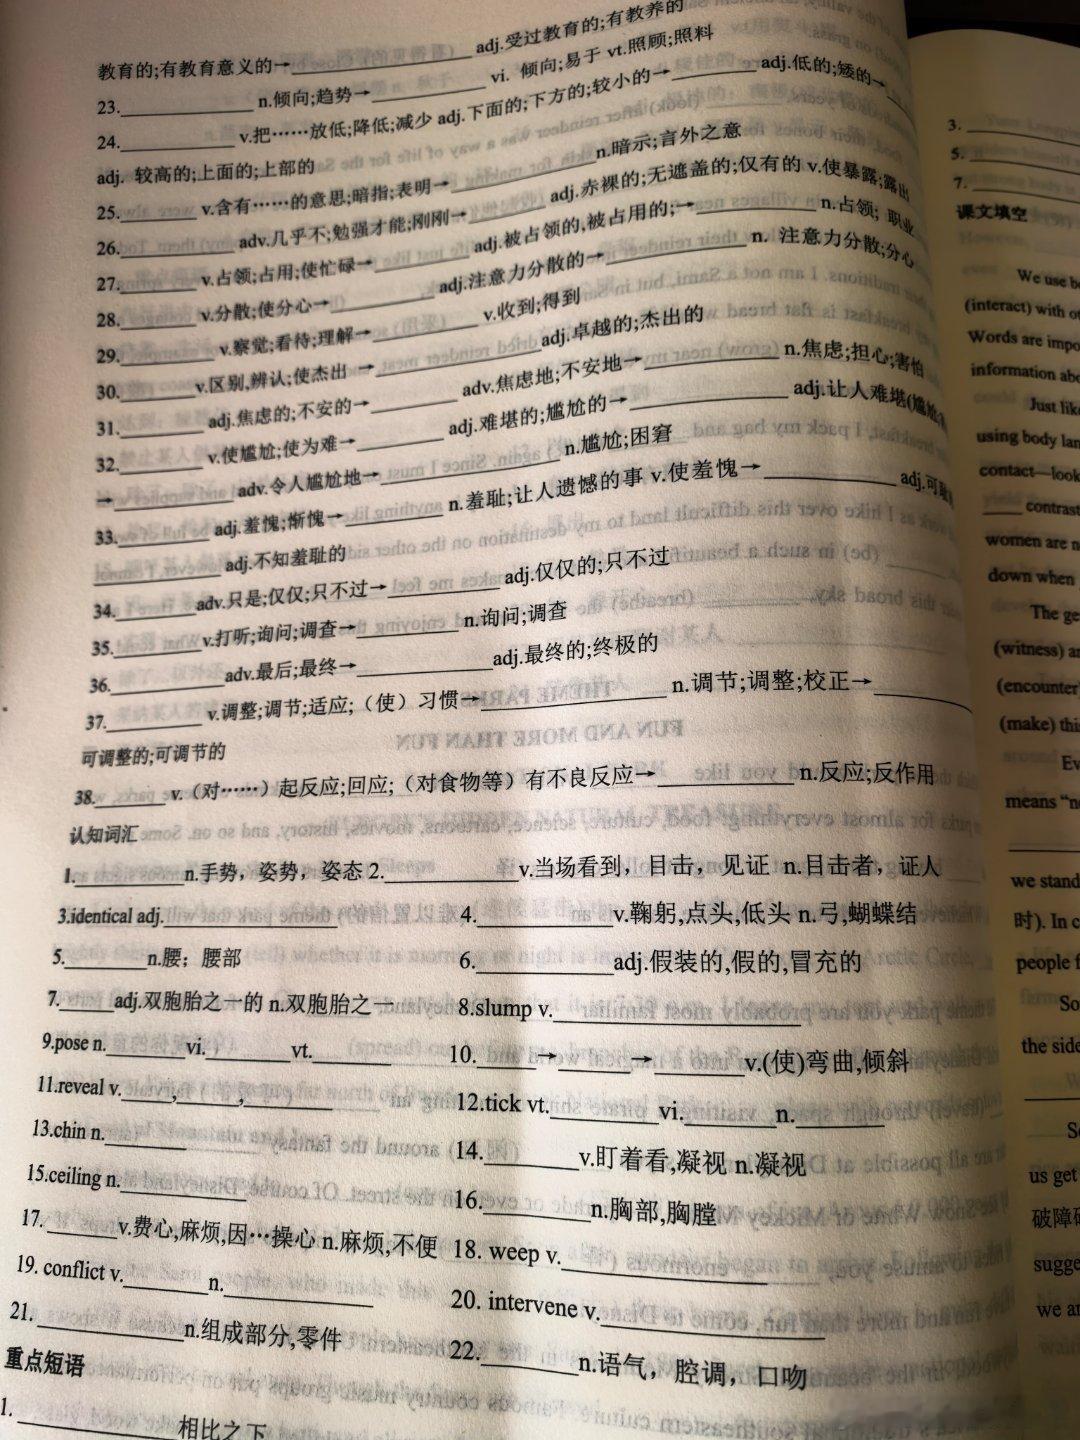 教育的;有教育意义的→__________ adj.受过教育的;有教养的
23.__________ n.倾向;趋势→__________ vi. 倾向;易于 vt.照顾;照料
24.__________ v.把……放低;降低;减少 adj.下面的;下方的;较小的→________ adj.低的;矮的→
adj. 较高的;上面的;上部的
25.________ v.含有……的意思;暗指;表明→__________ n.暗示;言外之意
26.________ adv.几乎不;勉强才能;刚刚→________ adj.赤裸的;无遮盖的;仅有的 v.使暴露;露出
27.________ v.占领;占用;使忙碌→________ adj.被占领的,被占用的;→__________ n.占领; 职业
28.________ v.分散;使分心→__________ adj.注意力分散的→__________ n. 注意力分散;分心
29.________ v.察觉;看待;理解→__________ v.收到;得到
30.________ v.区别,辨认;使杰出 →__________ adj.卓越的;杰出的
31.________ adj.焦虑的;不安的→________ adv.焦虑地;不安地→__________ n.焦虑;担心;害怕
32.________ v.使尴尬;使为难→________ adj.难堪的;尴尬的→__________ adj.让人难堪(尴尬
→__________ adv.令人尴尬地→__________ n.尴尬;困窘
33.________ adj.羞愧;惭愧→__________ n.羞耻;让人遗憾的事 v.使羞愧→__________ adj.可耻
__________ adj.不知羞耻的
34.________ adv.只是;仅仅;只不过→__________ adj.仅仅的;只不过
35.________ v.打听;询问;调查→__________ n.询问;调查
36.__________ adv.最后;最终→__________ adj.最终的;终极的
37.__________ v.调整;调节;适应;（使）习惯→__________ n.调节;调整;校正→__________
可调整的;可调节的
38.________ v.（对……）起反应;回应;（对食物等）有不良反应→__________ n.反应;反作用
认知词汇
1.__________ n.手势，姿势，姿态 2.__________ v.当场看到，目击，见证 n.目击者，证人
3.identical adj.__________ 4.__________ v.鞠躬,点头,低头 n.弓,蝴蝶结
5.________ n.腰；腰部 6.__________ adj.假装的,假的,冒充的
7._____ adj.双胞胎之一的 n.双胞胎之一 8.slump v.__________
9.pose n.______ vi.______ vt.______ 10.______→______→______ v.(使)弯曲,倾斜
11.reveal v._____,_____,_____ 12.tick vt.________ vi.________ n.________
13.chin n.________ 14.________ v.盯着看,凝视 n.凝视
15.ceiling n.__________ 16.__________ n.胸部,胸膛
17.______ v.费心,麻烦,因…操心 n.麻烦,不便 18. weep v.__________
19. conflict v.________ n.__________ 20. intervene v.__________
21.__________ n.组成部分,零件 22.________ n.语气，腔调，口吻
重点短语
1.__________ 相比之下
3.
5.
7.
课文填空
We use
(interact) with
Words are
information
Just
using body
contact—
contrast
women are
down when
The
(witness)
(encounter
(make)
means
we
时). In
people
the side
us get
破障
we